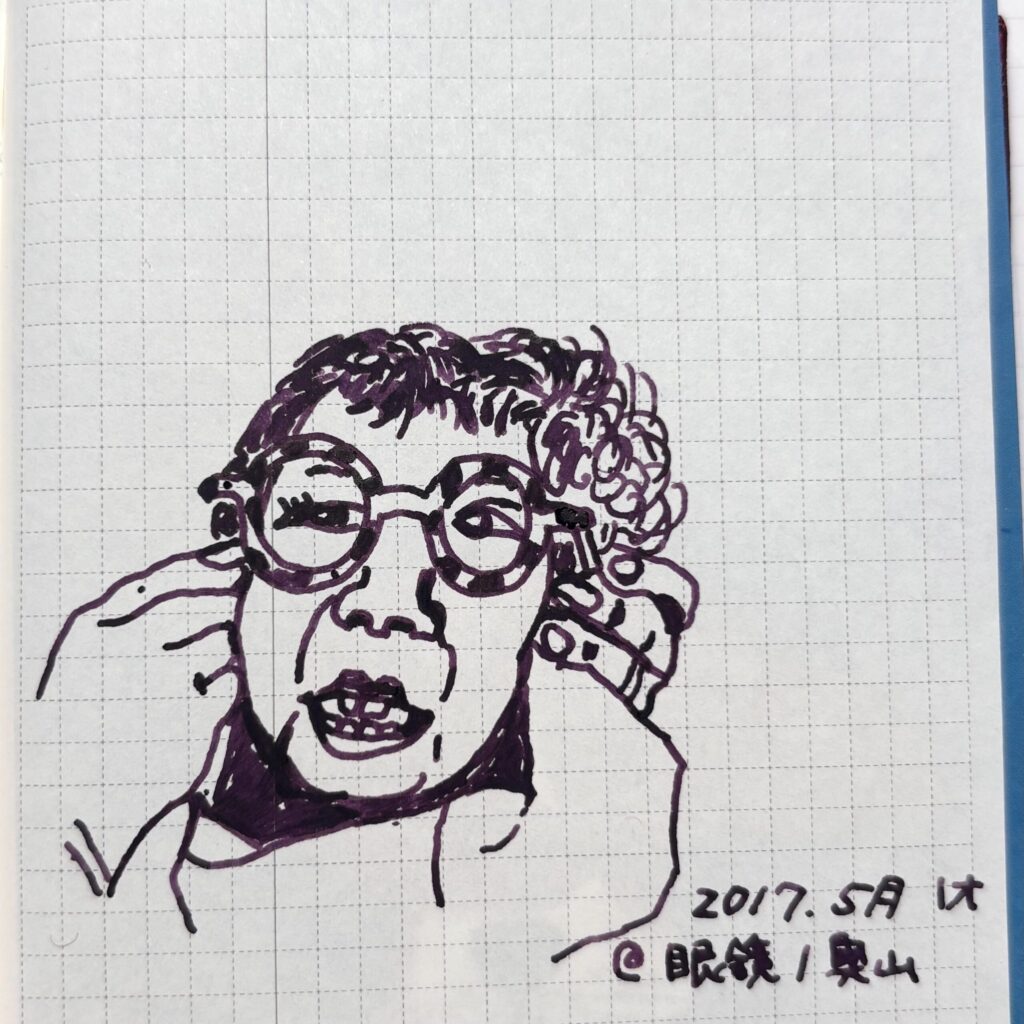 2017. 5月 け
@ 眼鏡ノ奥山